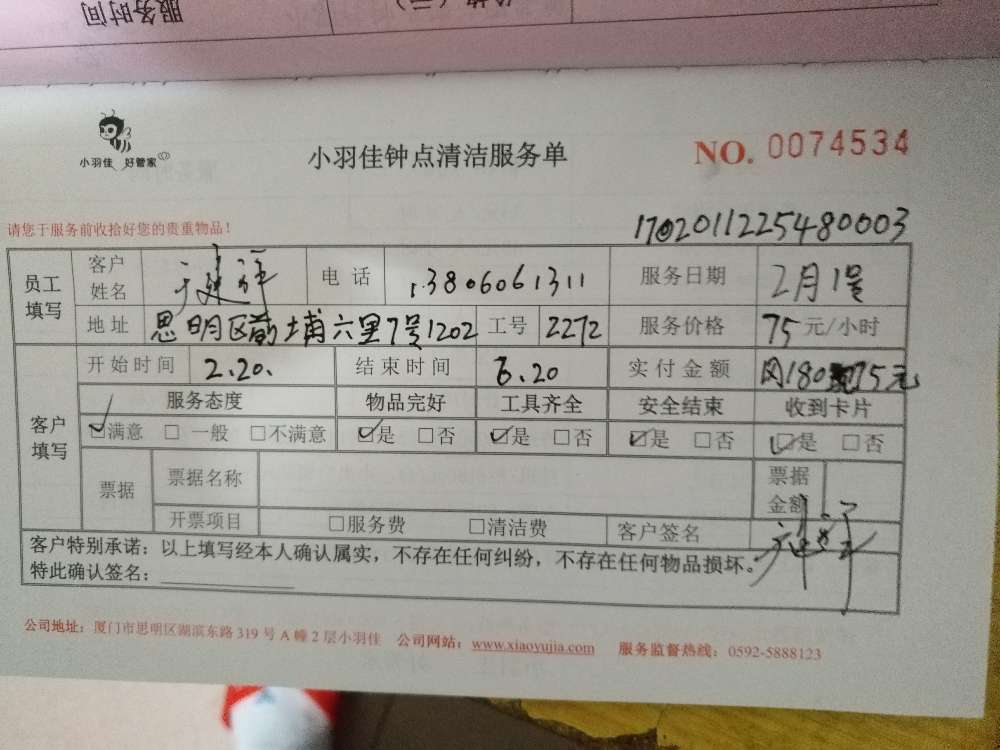 服务时间
小羽佳 好管家
小羽佳钟点清洁服务单
NO. 0074534
请您于服务前收拾好您的贵重物品！
17020112254480003
员工填写 客户姓名 电话 13806061311 服务日期 2月1号
地址 思明区前埔六里7号1202 工号 2272 服务价格 75元/小时
客户填写 开始时间 2.20. 结束时间 6.20 实付金额 180 75元
服务态度 物品完好 工具齐全 安全结束 收到卡片
☑满意 □一般 □不满意 ☑是 □否 ☑是 □否 ☑是 □否 ☑是 □否
票据 票据名称 票据金额
开票项目 □服务费 □清洁费 客户签名
客户特别承诺：以上填写经本人确认属实，不存在任何纠纷，不存在任何物品损坏。
特此确认签名：
公司地址：厦门市思明区湖滨东路 319 号 A 幢 2 层小羽佳 公司网站：www.xiaoyujia.com 服务监督热线：0592-5888123